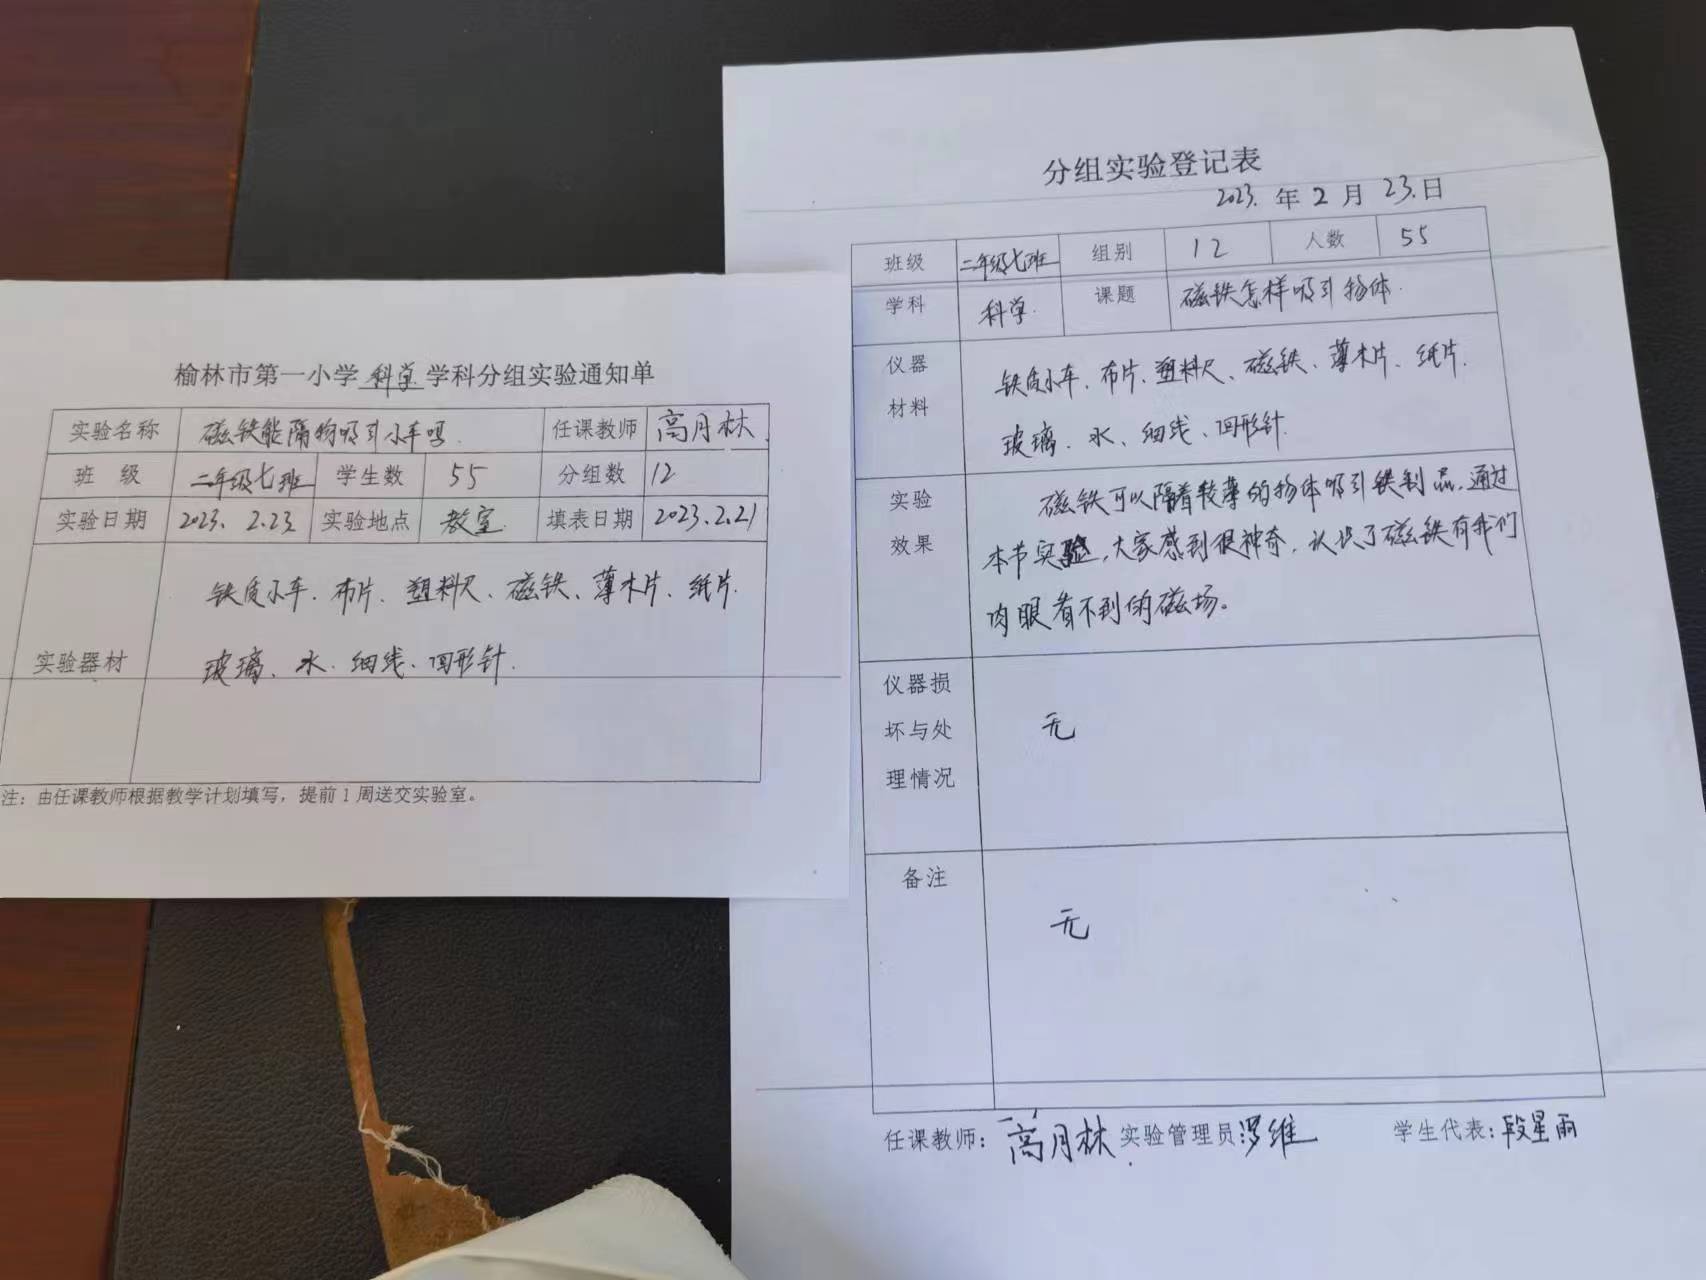 榆林市第一小学科学学科分组实验通知单
实验名称 磁铁能隔物吸引小车吗. 任课教师 高月林
班 级 二年级七班 学生数 55 分组数 12
实验日期 2023. 2.23 实验地点 教室 填表日期 2023.2.21
实验器材
铁质小车、布片、塑料尺、磁铁、薄木片、纸片.
玻璃、水、细线、回形针.
注：由任课教师根据教学计划填写，提前1周送交实验室。
分组实验登记表
2023. 年 2 月 23.日
班级 二年级七班 组别 12 人数 55
学科 科学. 课题 磁铁怎样吸引物体.
仪器
材料
铁质小车、布片、塑料尺、磁铁、薄木片、纸片.
玻璃、水、细线、回形针.
实验
效果
磁铁可以隔着较薄的物体吸引铁制品，通过
本节实验，大家感到很神奇，认识了磁铁有我们
肉眼看不到的磁场。
仪器损
坏与处
理情况
无
备注
无
任课教师：高月林 实验管理员 罗维 学生代表：段星雨